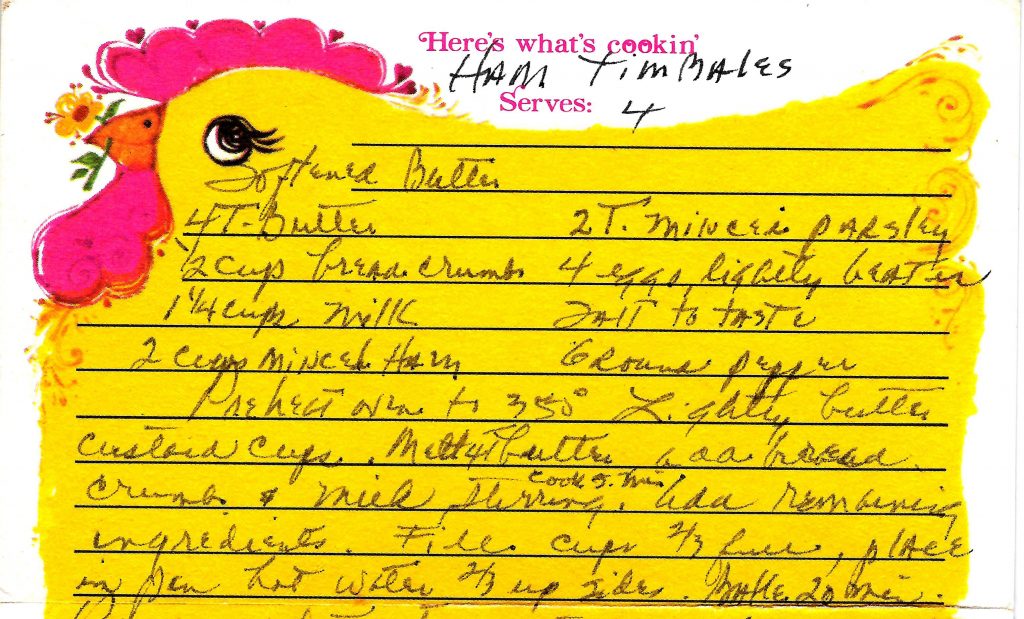 Here's what's cookin'
HAM TIMBALES
Serves: 4
Softened Butter
4T. Butter 2 T. Minced parsley
1/2 cup bread crumbs 4 eggs lightly beaten
1 1/4 cups Milk Salt to taste
2 cups minced Ham Ground pepper
Preheat oven to 350° Lightly butter
custard cups. Melt 4T butter add bread
crumbs & milk stirring. Cook 5 min. Add remaining
ingredients. Fill cups 2/3 full, place
in pan hot water 2/3 up sides. Bake 20 min.